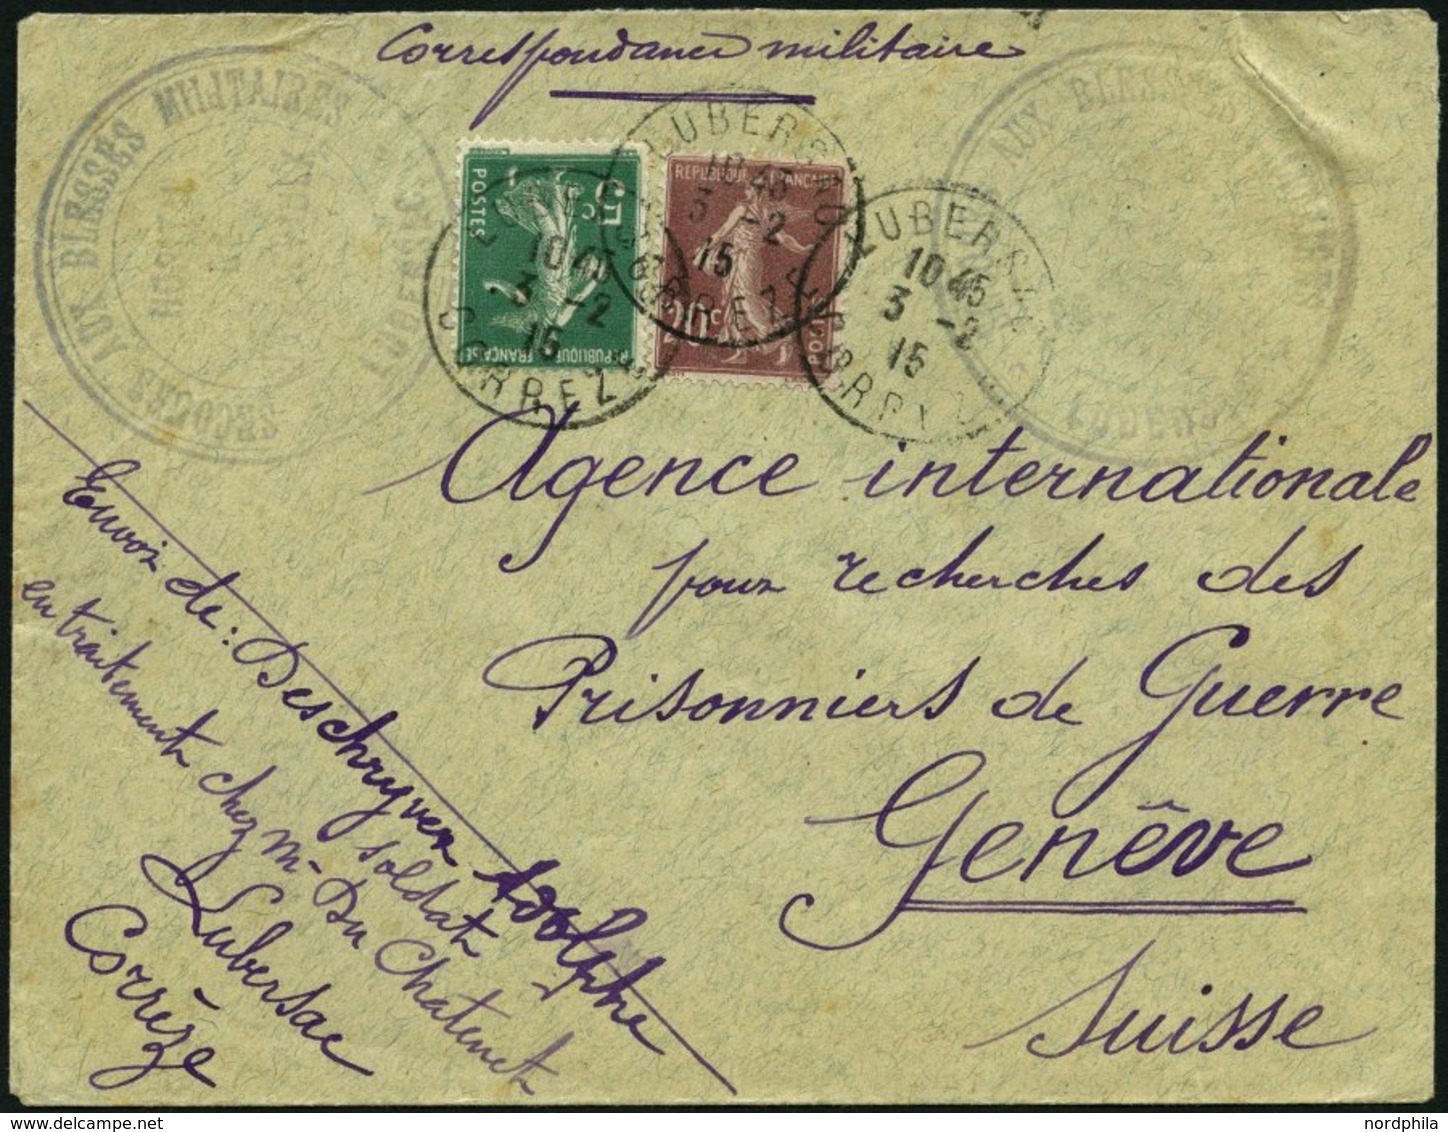 Correspondance militaire
SECOURS AUX BLESSÉS MILITAIRES
LUBERSAC
AUX BLESSÉS
5c
POSTES
REPUBLIQUE FRANÇAISE
REPUBLIQUE FRANÇAISE
20c
POSTES
LUBERSAC
10 45
3 -2
15
CORREZE
LUBERSAC
10 45
3 -2
15
CORREZE
LUBERSAC
10 45
3 -2
15
CORREZE
Agence internationale
pour recherches des
Prisonniers de Guerre
Genêve
Suisse
Envoi de: Deschryver Adolphe
soldat
en traitement chez M- Du Chatenet
Lubersac
Corrèze
www.delcampe.net
nordphila